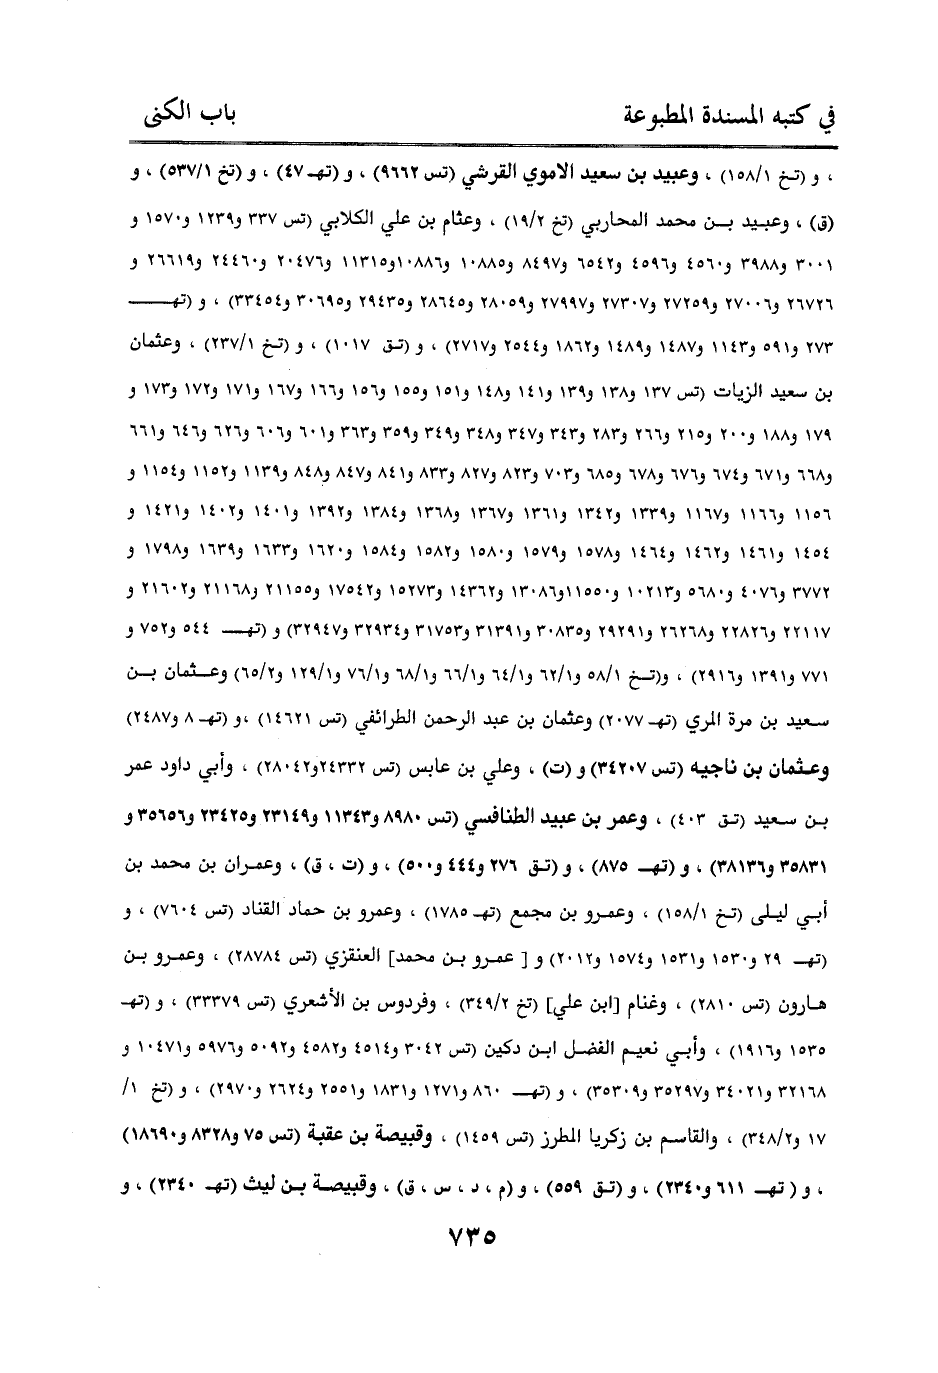 في كتبه المسندة المطبوعة باب الكنى
، و (تخ ١٥٨/١) ، وعبيد بن سعيد الاموي القرشي (تس ٩٦٦٢) ، و (تهـ ٤٧) ، و (تخ ٥٣٧/١) ، و
(ق) ، وعبيد بن محمد المحاربي (تخ ١٩/٢) ، وعثام بن علي الكلابي (تس ٣٣٧ و١٢٣٩ و١٥٧٠ و
٣٠٠١ و٣٩٨٨ و٤٥٦٠ و٤٥٩٦ و٦٥٤٢ و٨٤٩٧ و١٠٨٨٥ و١٠٨٨٦و١١٣١٥ و٢٠٤٧٦ و٢٤٤٦٠ و٢٦٦١٩ و
٢٦٧٢٦ و٢٧٠٠٦ و٢٧٢٥٩ و٢٧٣٠٧ و٢٧٩٩٧ و٢٨٠٥٩ و٢٨٦٤٥ و٢٩٤٣٥ و٣٠٦٩٥ و٣٣٤٥٤) ، و (تهـ
٢٧٣ و٥٩١ و١١٤٣ و١٤٨٧ و١٤٨٩ و١٨٦٢ و٢٥٤٤ و٢٧١٧) ، و (تق ١٠١٧) ، و (تخ ٢٣٧/١) ، وعثمان
بن سعيد الزيات (تس ١٣٧ و١٣٨ و١٣٩ و١٤١ و١٤٨ و١٥١ و١٥٥ و١٥٦ و١٦٦ و١٦٧ و١٧١ و١٧٢ و١٧٣ و
١٧٩ و١٨٨ و٢٠٠ و٢١٥ و٢٦٦ و٢٨٣ و٣٤٣ و٣٤٧ و٣٤٨ و٣٤٩ و٣٥٩ و٣٦٣ و٦٠١ و٦٠٦ و٦٢٦ و٦٤٦ و٦٦١
و٦٦٨ و٦٧١ و٦٧٤ و٦٧٦ و٦٧٨ و٦٨٥ و٧٠٣ و٨٢٣ و٨٢٧ و٨٣٣ و٨٤١ و٨٤٧ و٨٤٨ و١١٣٩ و١١٥٢ و١١٥٤ و
١١٥٦ و١١٦٦ و١١٦٧ و١٣٣٩ و١٣٤٢ و١٣٦١ و١٣٦٧ و١٣٦٨ و١٣٨٤ و١٣٩٢ و١٤٠١ و١٤٠٢ و١٤٢١ و
١٤٥٤ و١٤٦١ و١٤٦٢ و١٤٦٤ و١٥٧٨ و١٥٧٩ و١٥٨٠ و١٥٨٢ و١٥٨٤ و١٦٢٠ و١٦٣٣ و١٦٣٩ و١٧٩٨ و
٣٧٧٢ و٤٠٧٦ و٥٦٨٠ و١٠٢١٣ و١١٥٥٠و١٣٠٨٦ و١٤٣٦٢ و١٥٢٧٣ و١٧٥٤٢ و٢١١٥٥ و٢١١٦٨ و٢١٦٠٢ و
٢٢١١٧ و٢٢٨٢٦ و٢٦٢٦٨ و٢٩٢٩١ و٣٠٨٣٥ و٣١٣٩١ و٣١٧٥٣ و٣٢٩٣٤ و٣٢٩٤٧) و (تهـ ٥٤٤ و٧٥٢ و
٧٧١ و١٣٩١ و٢٩١٦) ، و(تخ ٥٨/١ و٦٢/١ و٦٤/١ و٦٦/١ و٦٨/١ و٧٦/١ و١٢٩/١ و٦٥/٢) وعثمان بن
سعيد بن مرة المري (تهـ ٢٠٧٧) وعثمان بن عبد الرحمن الطرائفي (تس ١٤٦٢١) ،و (تهـ ٨ و٢٤٨٧)
وعثمان بن ناجيه (تس ٣٤٢٠٧) و (ت) ، وعلي بن عابس (تس ٢٤٣٣٢و٢٨٠٤٢) ، وأبي داود عمر
بن سعيد (تق ٤٠٣) ، وعمر بن عبيد الطنافسي (تس ٨٩٨٠ و١١٣٤٣ و٢٣١٤٩ و٢٣٤٢٥ و٣٥٦٥٦ و
٣٥٨٣١ و٣٨١٣٦) ، و (تهـ ٨٧٥) ، و (تق ٢٧٦ و٤٤٤ و٥٠٠) ، و (ت ، ق) ، وعمران بن محمد بن
أبي ليلى (تخ ١٥٨/١) ، وعمرو بن مجمع (تهـ ١٧٨٥) ، وعمرو بن حماد القناد (تس ٧٦٠٤) ، و
(تهـ ٢٩ و١٥٣٠ و١٥٣١ و١٥٧٤ و٢٠١٢) و [ عمرو بن محمد] العنقزي (تس ٢٨٧٨٤) ، وعمرو بن
هارون (تس ٢٨١٠) ، وغنام [ابن علي] (تخ ٣٤٩/٢) ، وفردوس بن الأشعري (تس ٣٣٣٧٩) ، و (تهـ
١٥٣٥ و١٩١٦) ، وأبي نعيم الفضل ابن دكين (تس ٣٠٤٢ و٤٥١٤ و٤٥٨٢ و٥٠٩٢ و٥٩٧٦ و١٠٤٧١ و
٣٢١٦٨ و٣٤٠٢١ و٣٥٢٩٧ و٣٥٣٠٩) ، و (تهـ ٨٦٠ و١٢٧١ و١٨٣١ و٢٥٥١ و٢٦٢٤ و٢٩٧٠) ، و (تخ ١/
١٧ و٣٤٨/٢) ، والقاسم بن زكريا المطرز (تس ١٤٥٩) ، وقبيصة بن عقبة (تس ٧٥ و٨٣٢٨ و١٨٦٩٠)
، و ( تهـ ٦١١ و٢٣٤٠) ، و (تق ٥٥٩) ، و (م ، د ، س ، ق) ، وقبيصة بن ليث (تهـ ٢٣٤٠) ، و
٧٣٥